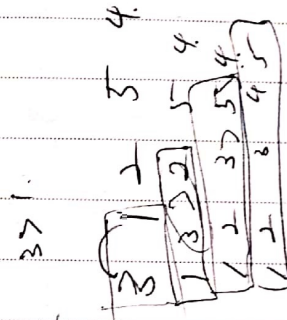 3>1.
3 1 2 5 4.
1 3 > 2 5 4.
1 2 3 > 5 > 4.
1 2 3 4 5